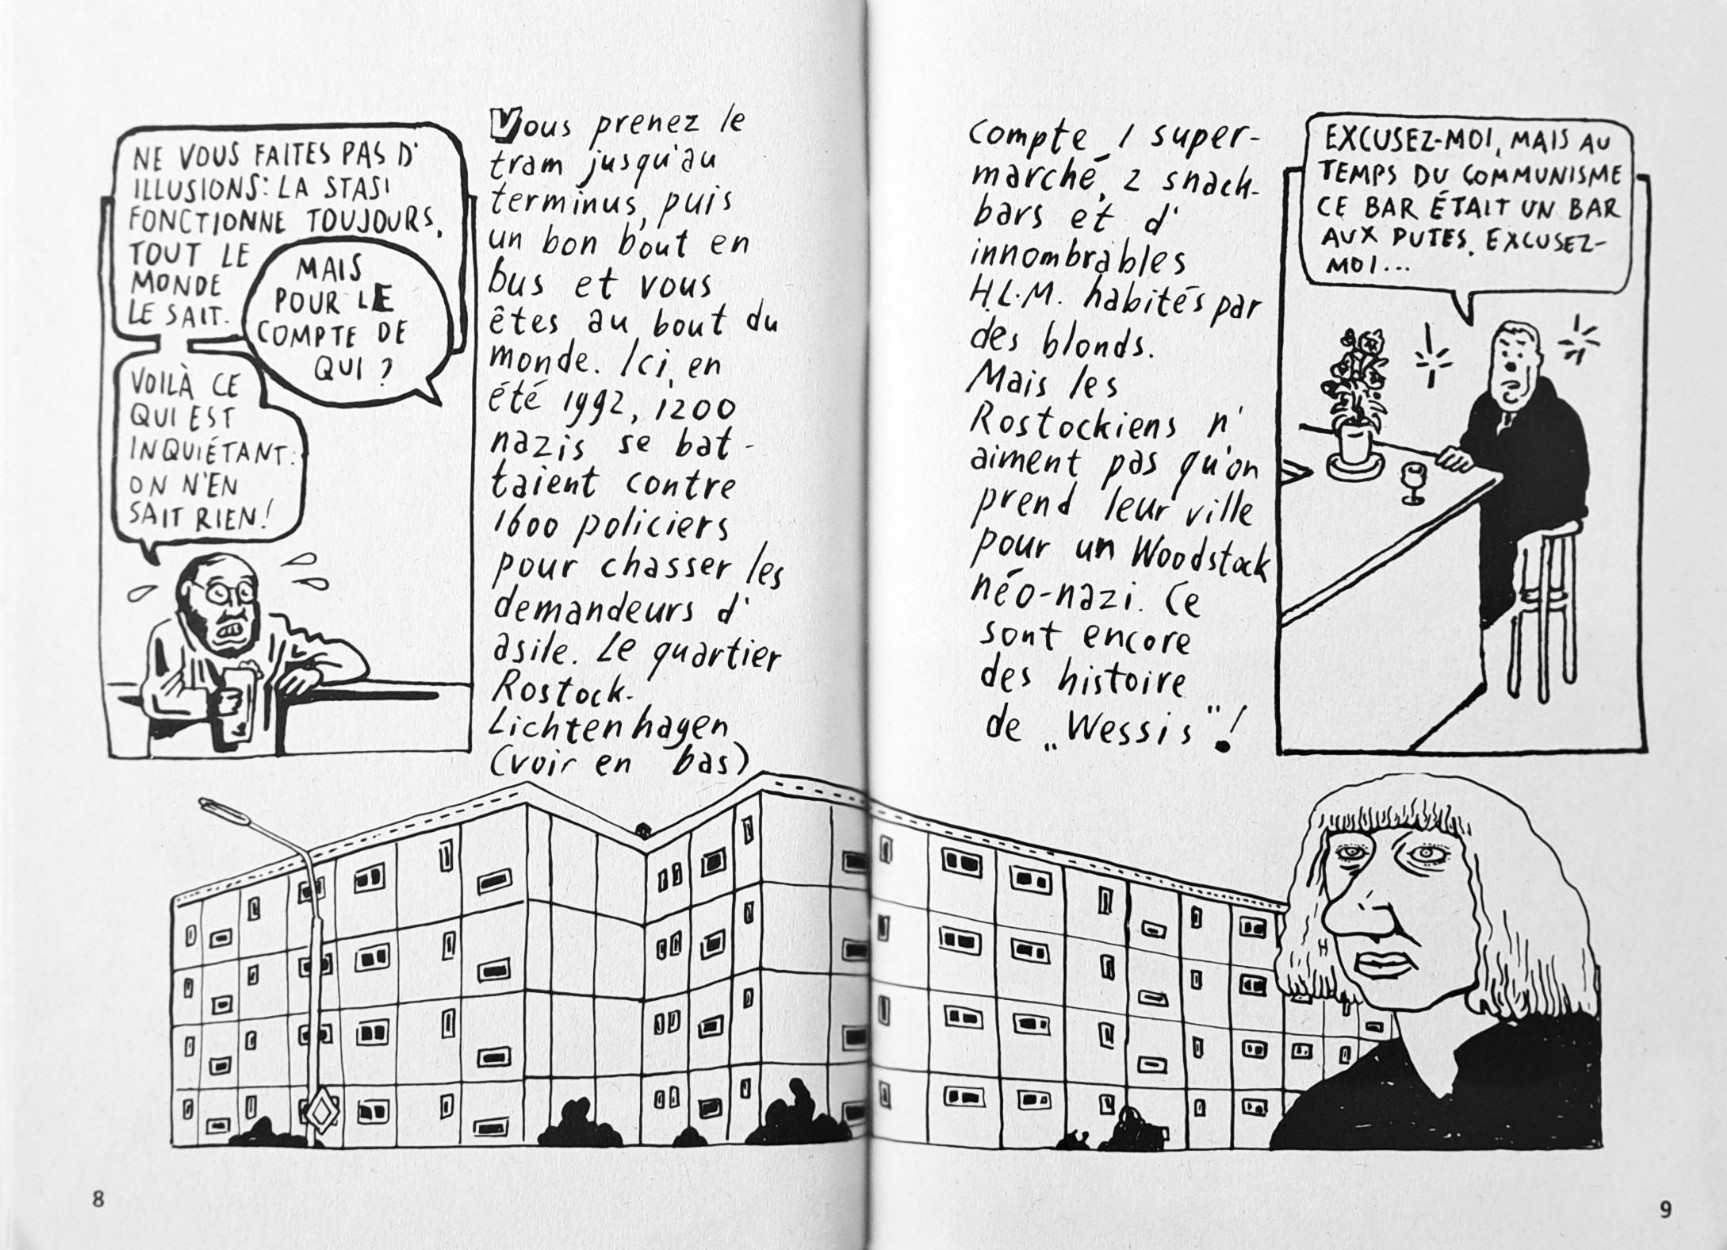 NE VOUS FAITES PAS D'
ILLUSIONS: LA STASI
FONCTIONNE TOUJOURS,
TOUT LE
MONDE
LE SAIT.
MAIS
POUR LE
COMPTE DE
QUI ?
VOILÀ CE
QUI EST
INQUIÉTANT:
ON N'EN
SAIT RIEN!
Vous prenez le
tram jusqu'au
terminus, puis
un bon bout en
bus et vous
êtes au bout du
monde. Ici, en
été 1992, 1200
nazis se bat-
taient contre
1600 policiers
pour chasser les
demandeurs d'
asile. Le quartier
Rostock-
Lichtenhagen
(voir en bas)
compte 1 super-
marché, 2 snack-
bars et d'
innombrables
H.L.M. habités par
des blonds.
Mais les
Rostockiens n'
aiment pas qu'on
prend leur ville
pour un Woodstock
néo-nazi. Ce
sont encore
des histoire
de „Wessis"!
EXCUSEZ-MOI, MAIS AU
TEMPS DU COMMUNISME
CE BAR ÉTAIT UN BAR
AUX PUTES. EXCUSEZ-
MOI...
8
9